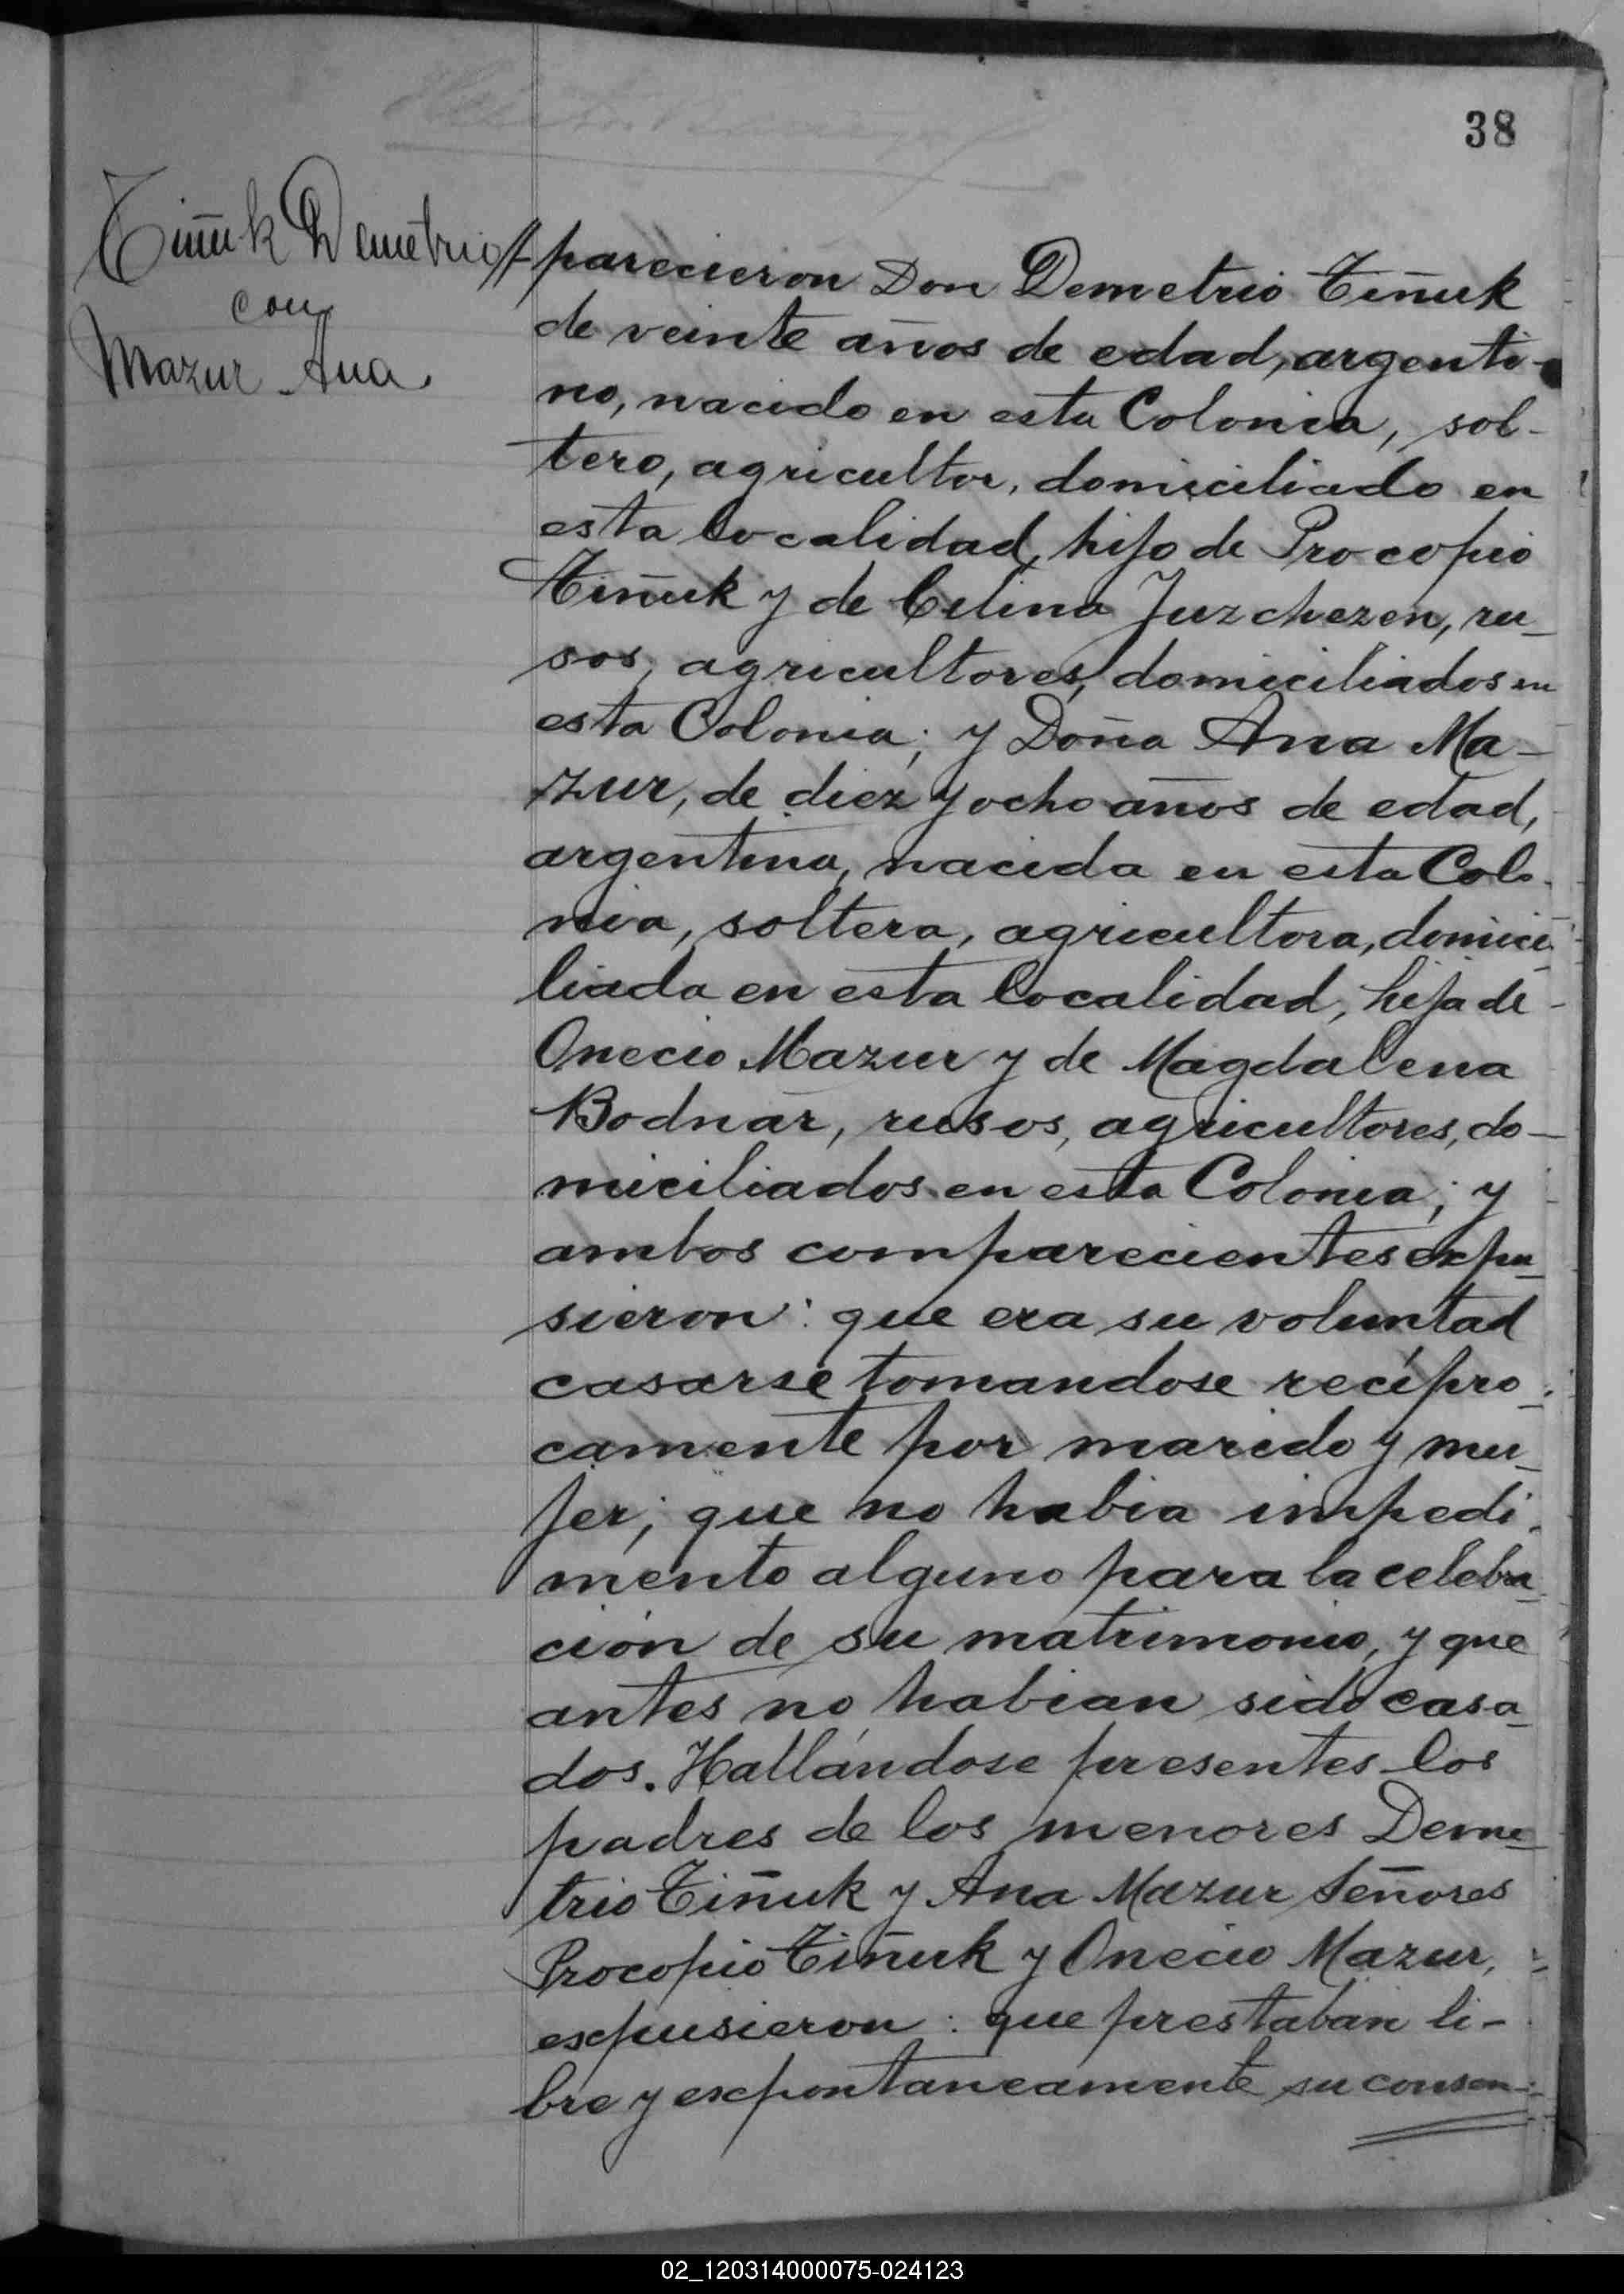 38
Tiñuk Demetrio
con
Mazur Ana.
//parecieron Don Demetrio Tiñuk
de veinte años de edad, argenti-
no, nacido en esta Colonia, sol-
tero, agricultor, domiciliado en
esta localidad, hijo de Procopio
Tiñuk y de Celina Juzchezen, ru-
sos, agricultores, domiciliados en
esta Colonia; y Doña Ana Ma-
zur, de diez y ocho años de edad,
argentina, nacida en esta Colo-
nia, soltera, agricultora, domici-
liada en esta localidad, hija de
Onecio Mazur y de Magdalena
Bodnar, rusos, agricultores, do-
miciliados en esta Colonia; y
ambos comparecientes expu-
sieron: que era su voluntad
casarse tomandose recípro-
camente por marido y mu-
jer; que no habia impedi-
mento alguno para la celebra-
ción de su matrimonio, y que
antes no habian sido casa-
dos. Hallándose presentes los
padres de los menores Deme-
trio Tiñuk y Ana Mazur Señores
Procopio Tiñuk y Onecio Mazur,
expusieron: que prestaban li-
bre y expontaneamente su consen-
02_120314000075-024123